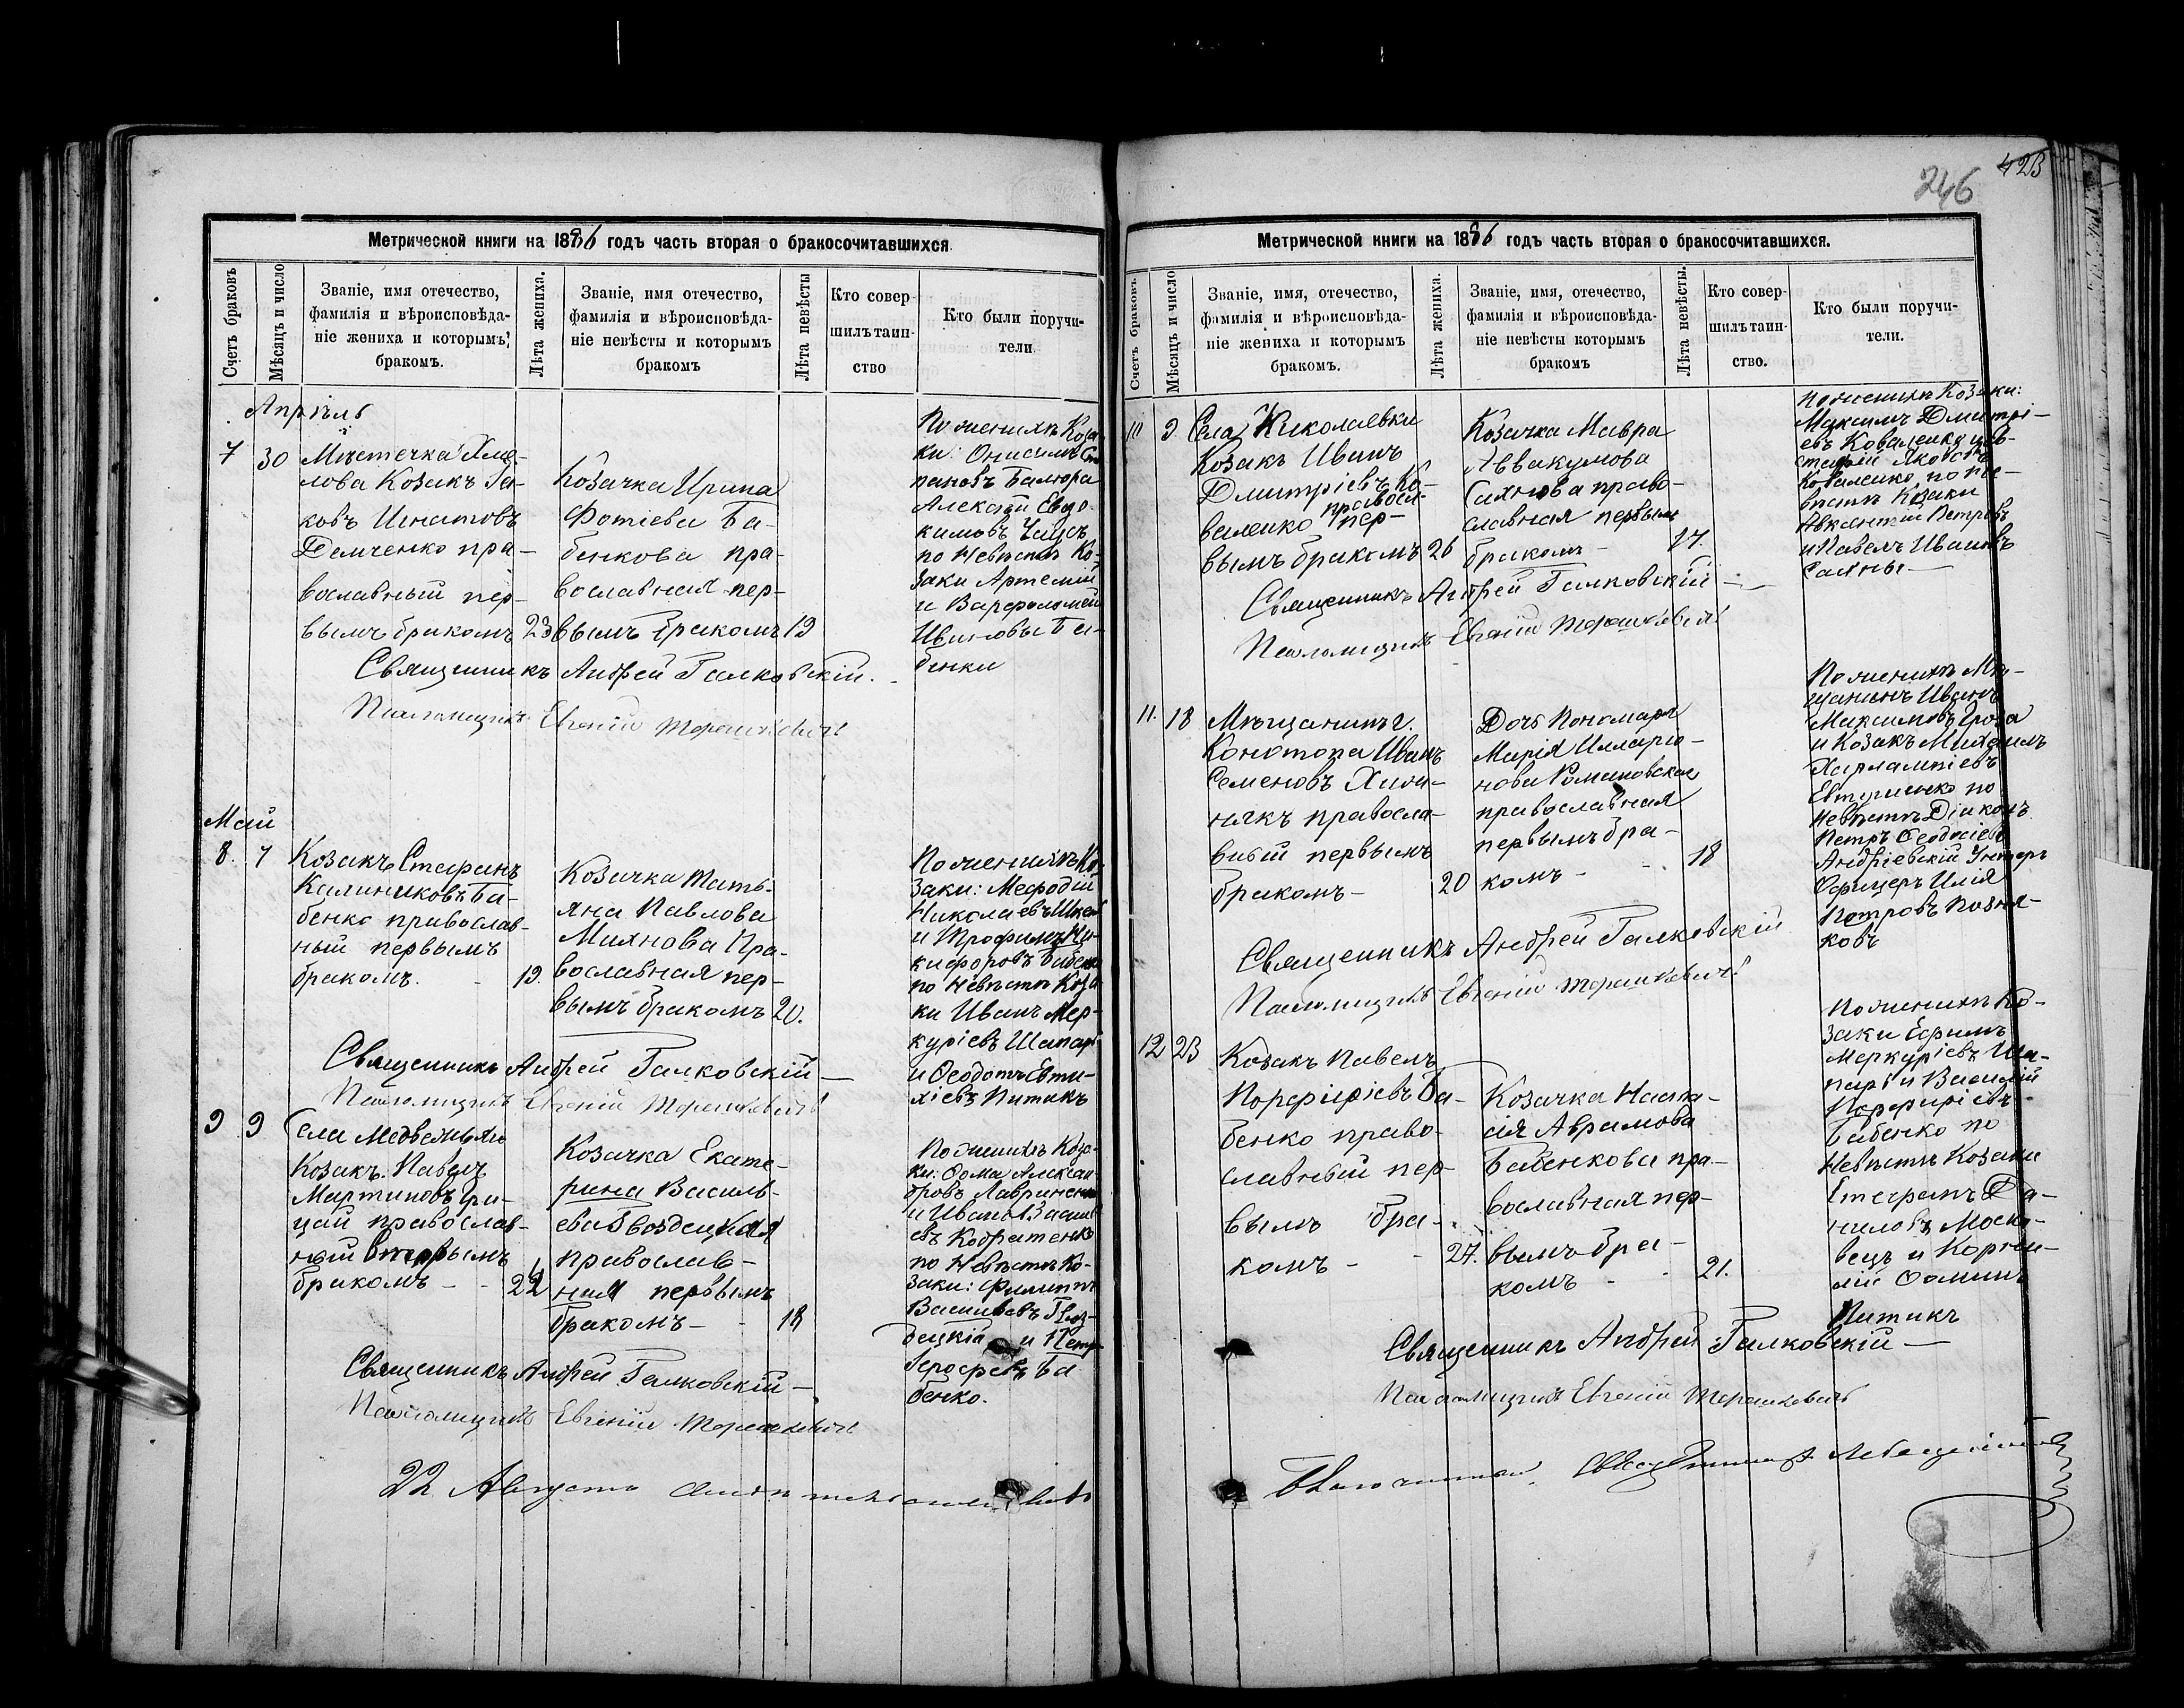 Метрической книги на 1886 годъ часть вторая о бракосочитавшихся
Счетъ браковъ
Мѣсяцъ и число
Званіе, имя отечество,
фамилія и вѣроисповѣда-
ніе жениха и которымъ
бракомъ.
Лѣта жениха.
Званіе, имя отечество,
фамилія и вѣроисповѣда-
ніе невѣсты и которымъ
бракомъ
Лѣта невѣсты
Кто совер-
шилъ таин-
ство
Кто были поручи-
тели.
Апрѣль
7 30
Мѣстечка
лова Козакъ
ковъ Игнатовъ
Демченко пра-
вославный пер-
вымъ бракомъ 23
Козачка Ирина
Фотіева Ба-
бенкова пра-
вославная пер-
вымъ бракомъ 19
По женихѣ Коза-
ки: Онисимъ
пановъ
Алексѣй Евдо-
кимовъ
по Невѣстѣ Ко-
заки Артемій
и Варфоломей
Ивановы Ба-
бенки
Священникъ Андрей Галковскій.
Псаломщикъ Евгеній
Май
8. 7
Козакъ Стефанъ
Калиниковъ Ба-
бенко православ-
ный первымъ
бракомъ. - 19.
Козачка Тать-
яна Павлова
Михнова Пра-
вославная пер-
вымъ бракомъ 20.
По женихѣ Ко-
заки: Мефодій
Николаевъ
и Трофимъ Ни-
кифоровъ Бабенко
по Невѣстѣ Коза-
ки Иванъ Мер-
куріевъ Шапарь
и Ѳеодотъ Евти-
хіевъ Питикъ
Священникъ Андрей Галковскій —
Псаломщикъ Евгеній
9 9
Села
Козакъ Павелъ
Мартиновъ Гри-
цай православ-
ный вторымъ
бракомъ - - 22
Козачка Екате-
рина Василь-
ева Гвоздецкая
православ-
ная первымъ
бракомъ - - 18
По женихѣ Коза-
ки: Ѳома Алексан-
дровъ Лавриненко
и Иванъ Василь-
евъ Кодратенко
по Невѣстѣ Ко-
заки: Филиппъ
Васильевъ Гвоз-
децкій и Петръ
Ба-
бенко.
Священникъ Андрей Галковскій —
Псаломщикъ Евгеній
22 Августа
246
Метрической книги на 1886 годъ часть вторая о бракосочитавшихся.
Счетъ браковъ.
Мѣсяцъ и число
Званіе, имя, отечество,
фамилія и вѣроисповѣда-
ніе жениха и которымъ
бракомъ.
Лѣта жениха.
Званіе, имя, отечество,
фамилія и вѣроисповѣда-
ніе невѣсты которымъ
бракомъ
Лѣта невѣсты.
Кто совер-
шилъ таин-
ство.
Кто были поручи-
тели.
10 9
Села Николаевки
Козакъ Иванъ
Дмитріевъ Ко-
валенко правосл. пер-
вымъ бракомъ 26
Козачка Мавра
Аввакумова
Сахнова право-
славная первым
бракомъ - 17.
По женихѣ Козаки:
Максимъ Дмитрі-
евъ Коваленко и Ев-
стафій Яковъ
Коваленко, по не-
вѣстѣ Козаки
Авксентій Петровъ
и Павелъ Ивановъ
Сахны —
Священникъ Андрей Галковскій —
Псаломщикъ Евгеній
11. 18
Мѣщанинъ г.
Конотопа Иванъ
Семеновъ
някъ правосла-
вный первымъ
бракомъ - 20
Дочь Пономаря
Марія Иларіо-
нова Романовская
православная
первымъ бра-
комъ - - 18
По женихѣ Мѣ-
щанинъ Иванъ
Максимовъ Гроза
и Козакъ Михаилъ
Харлампіевъ
Евтушенко по
Невѣстѣ Діаконъ
Петръ Ѳеодосіевъ
Андріевскій Унтеръ
Офицеръ Илія
Петровъ Позня-
ковъ
Священникъ Андрей Галковскій
Псаломщикъ Евгеній
12 23
Козакъ Павелъ
Порфиріевъ Ба-
бенко право-
славный пер-
вымъ бра-
комъ - - 27.
Козачка Наста-
сія Аврамова
Бабенкова пра-
вославная пер-
вымъ бра-
комъ - - 21.
По женихѣ Ко-
заки Ефимъ
Меркуріевъ Ша-
парь и Василій
Порфиріевъ
Бабенко по
Невѣстѣ Козаки
Стефанъ Да-
ниловъ Моск-
вецъ и Корни-
лій Ѳоминъ
Питикъ
Священникъ Андрей Галковскій —
Псаломщикъ Евгеній